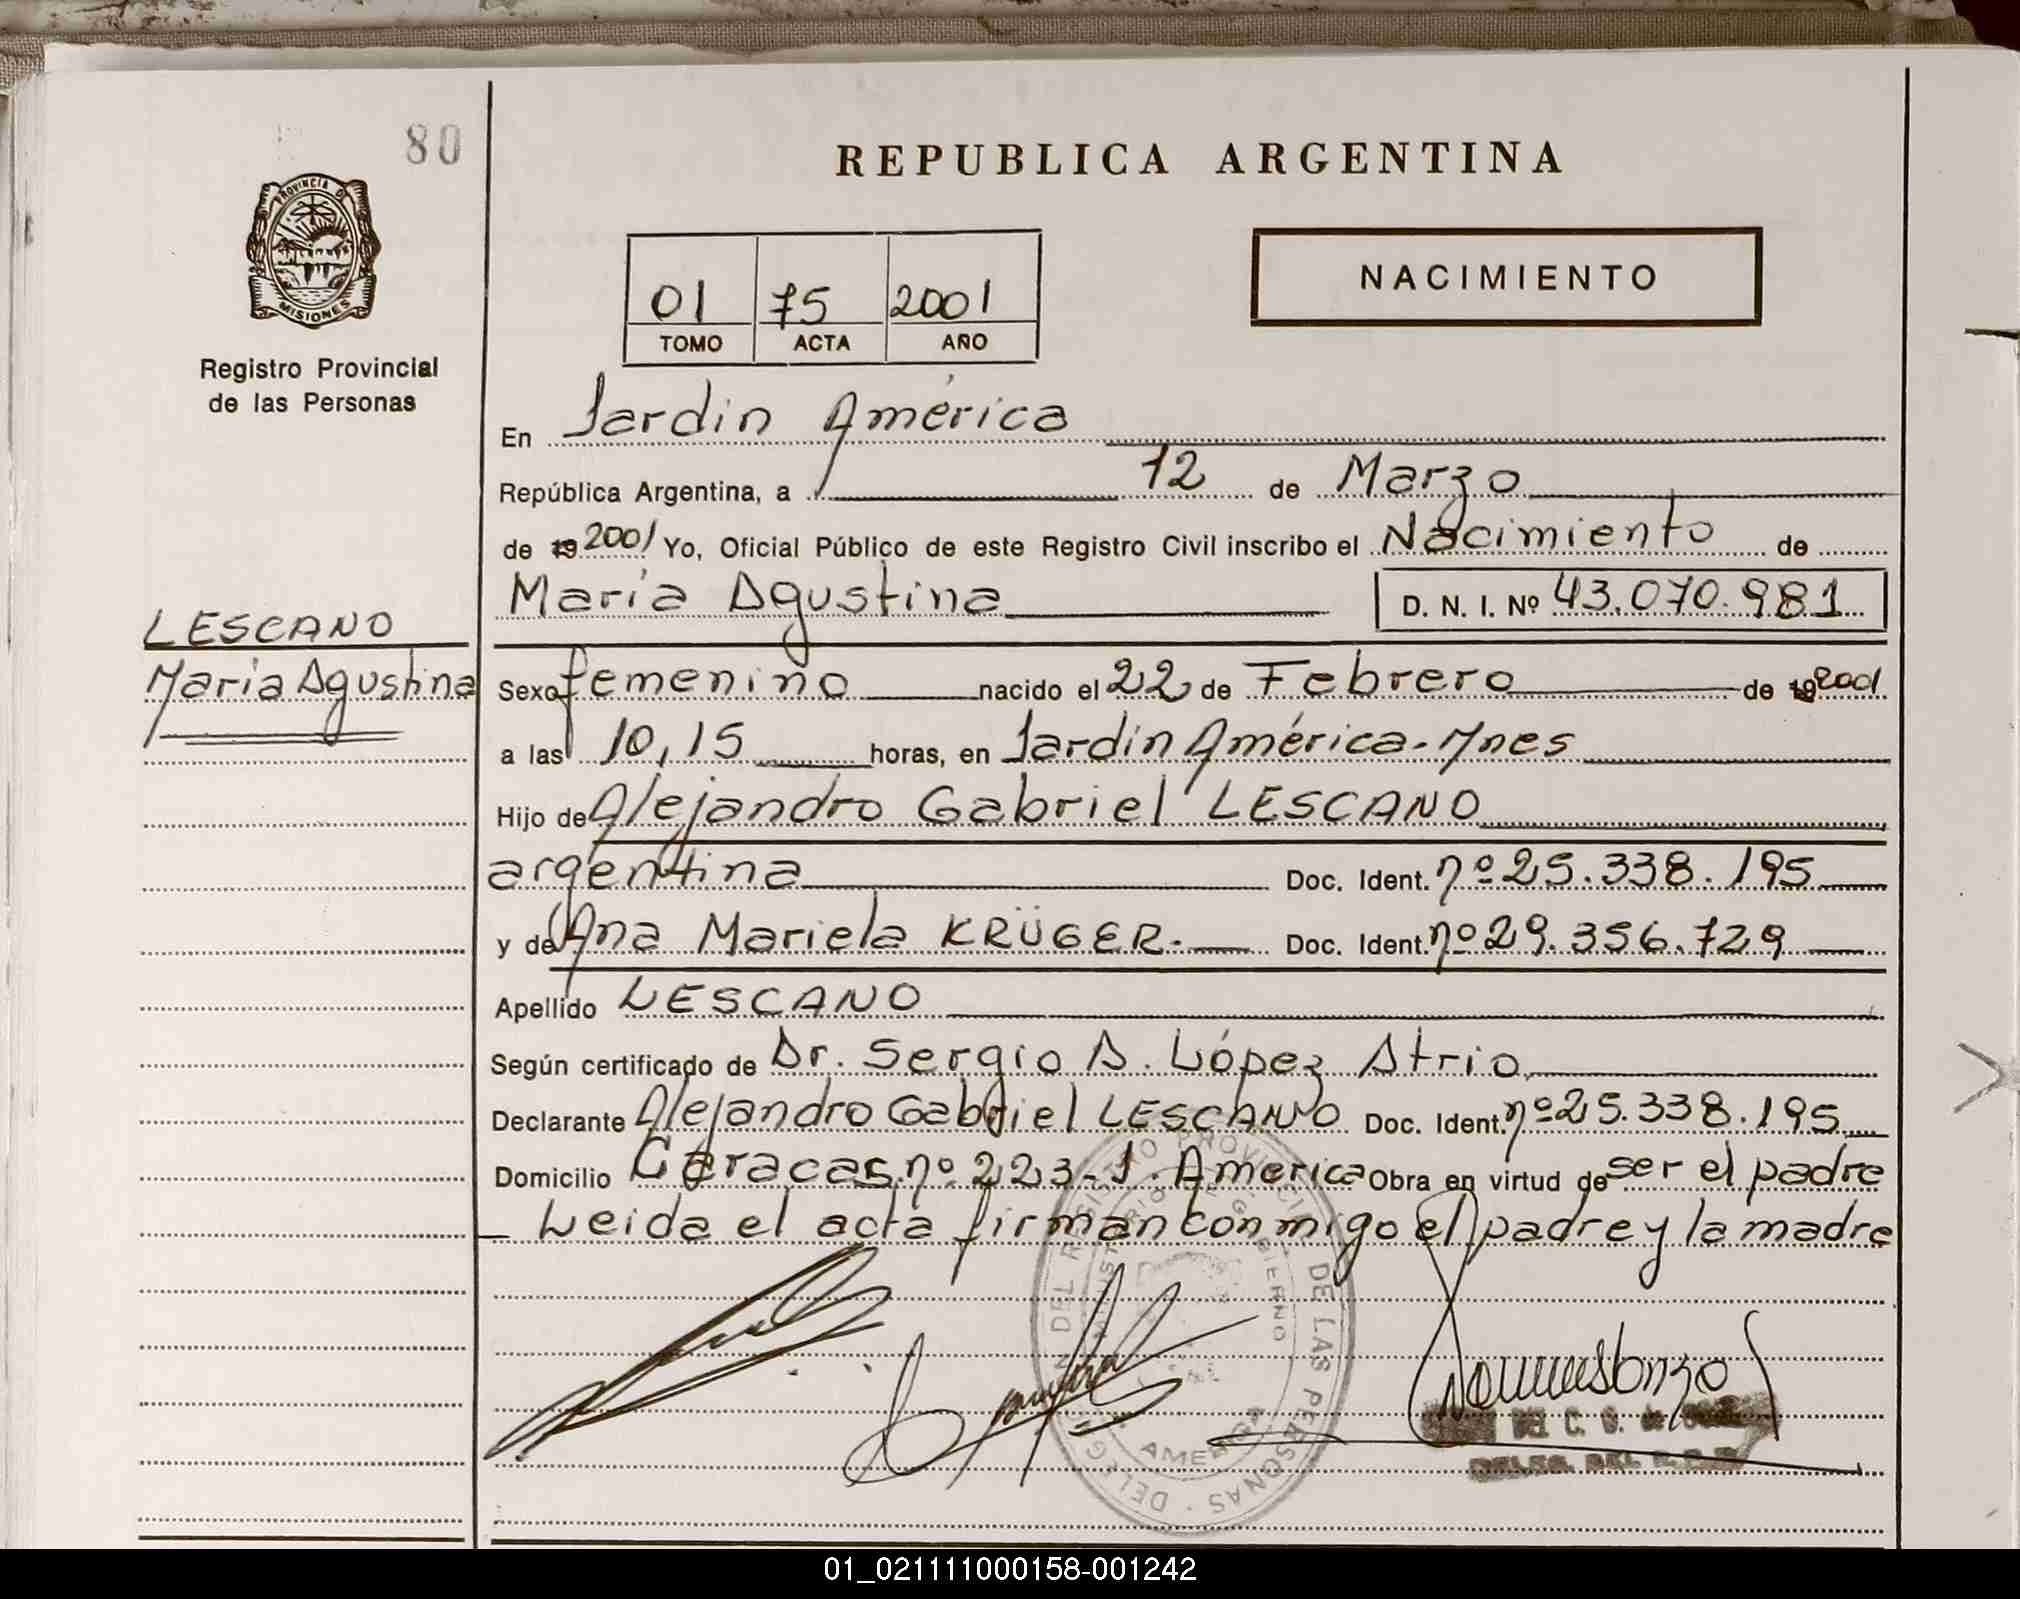 80
PROVINCIA DE
MISIONES
Registro Provincial
de las Personas
LESCANO
Maria Agustina
REPUBLICA ARGENTINA
01 75 2001
TOMO ACTA AÑO
NACIMIENTO
En Jardin América
República Argentina, a 12 de Marzo
de 19 2001 Yo, Oficial Público de este Registro Civil inscribo el Nacimiento de
Maria Agustina D. N. I. Nº 43.070.981
Sexo femenino nacido el 22 de Febrero de 19 2001
a las 10,15 horas, en Jardin América-Mnes
Hijo de Alejandro Gabriel LESCANO
argentina Doc. Ident. nº 25.338.195
y de Ana Mariela KRÜGER.- Doc. Ident. nº 29.356.729
Apellido LESCANO
Según certificado de Dr. Sergio A. López Atrio
Declarante Alejandro Gabriel LESCANO Doc. Ident. nº 25.338.195
Domicilio Caracas nº 223-J. America Obra en virtud de ser el padre
- Leida el acta firman conmigo el padre y la madre
REGISTRO PROVINCIAL DE LAS PERSONAS
AMERICA
DEL C. G. de
DELEG. DEL R.P.P.
01_021111000158-001242